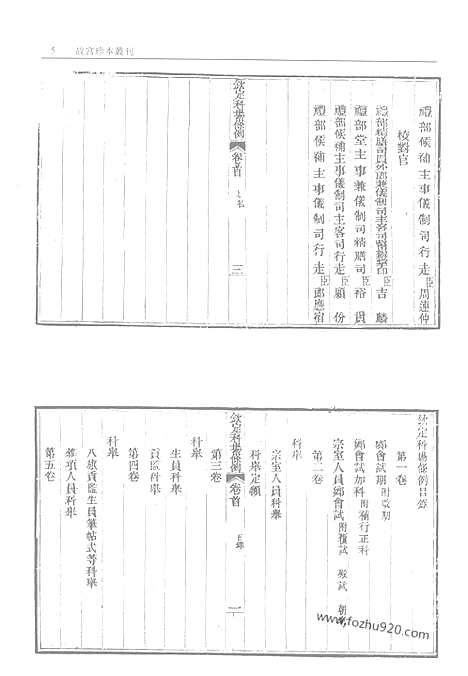 5 故宮珍本叢刊
禮部候補主事儀制司行走臣周蓮仲
校對官
禮部精膳司員外郎兼儀制司主客司
臣吉麟
禮部堂主事兼儀制司精膳司臣裕貫
禮部候補主事儀制司主客司行走臣顧份
禮部候補主事儀制司行走臣郎應宿
欽定科場條例 卷首 三
欽定科場條例目錄
第一卷
鄉會試期附改期
鄉會試加科附補行正科
宗室人員鄉會試附覆試 殿試 朝考
第二卷
科舉
宗室人員科舉
科舉定額
欽定科場條例 卷首 目錄 一
第三卷
科舉
生員科舉
貢監科舉
第四卷
科舉
八旗貢監生員筆帖式等科舉
雜項人員科舉
第五卷
www.fozhu920.com